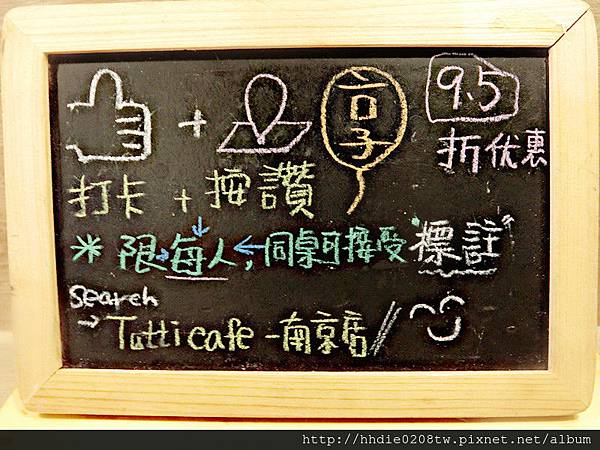 + 享 9.5
折优惠
打卡 + 按讚
* 限→每人, ←同桌可接受"標註"
search
→ Tutti cafe - 南京店//
http://hhdie0208tw.pixnet.net/album